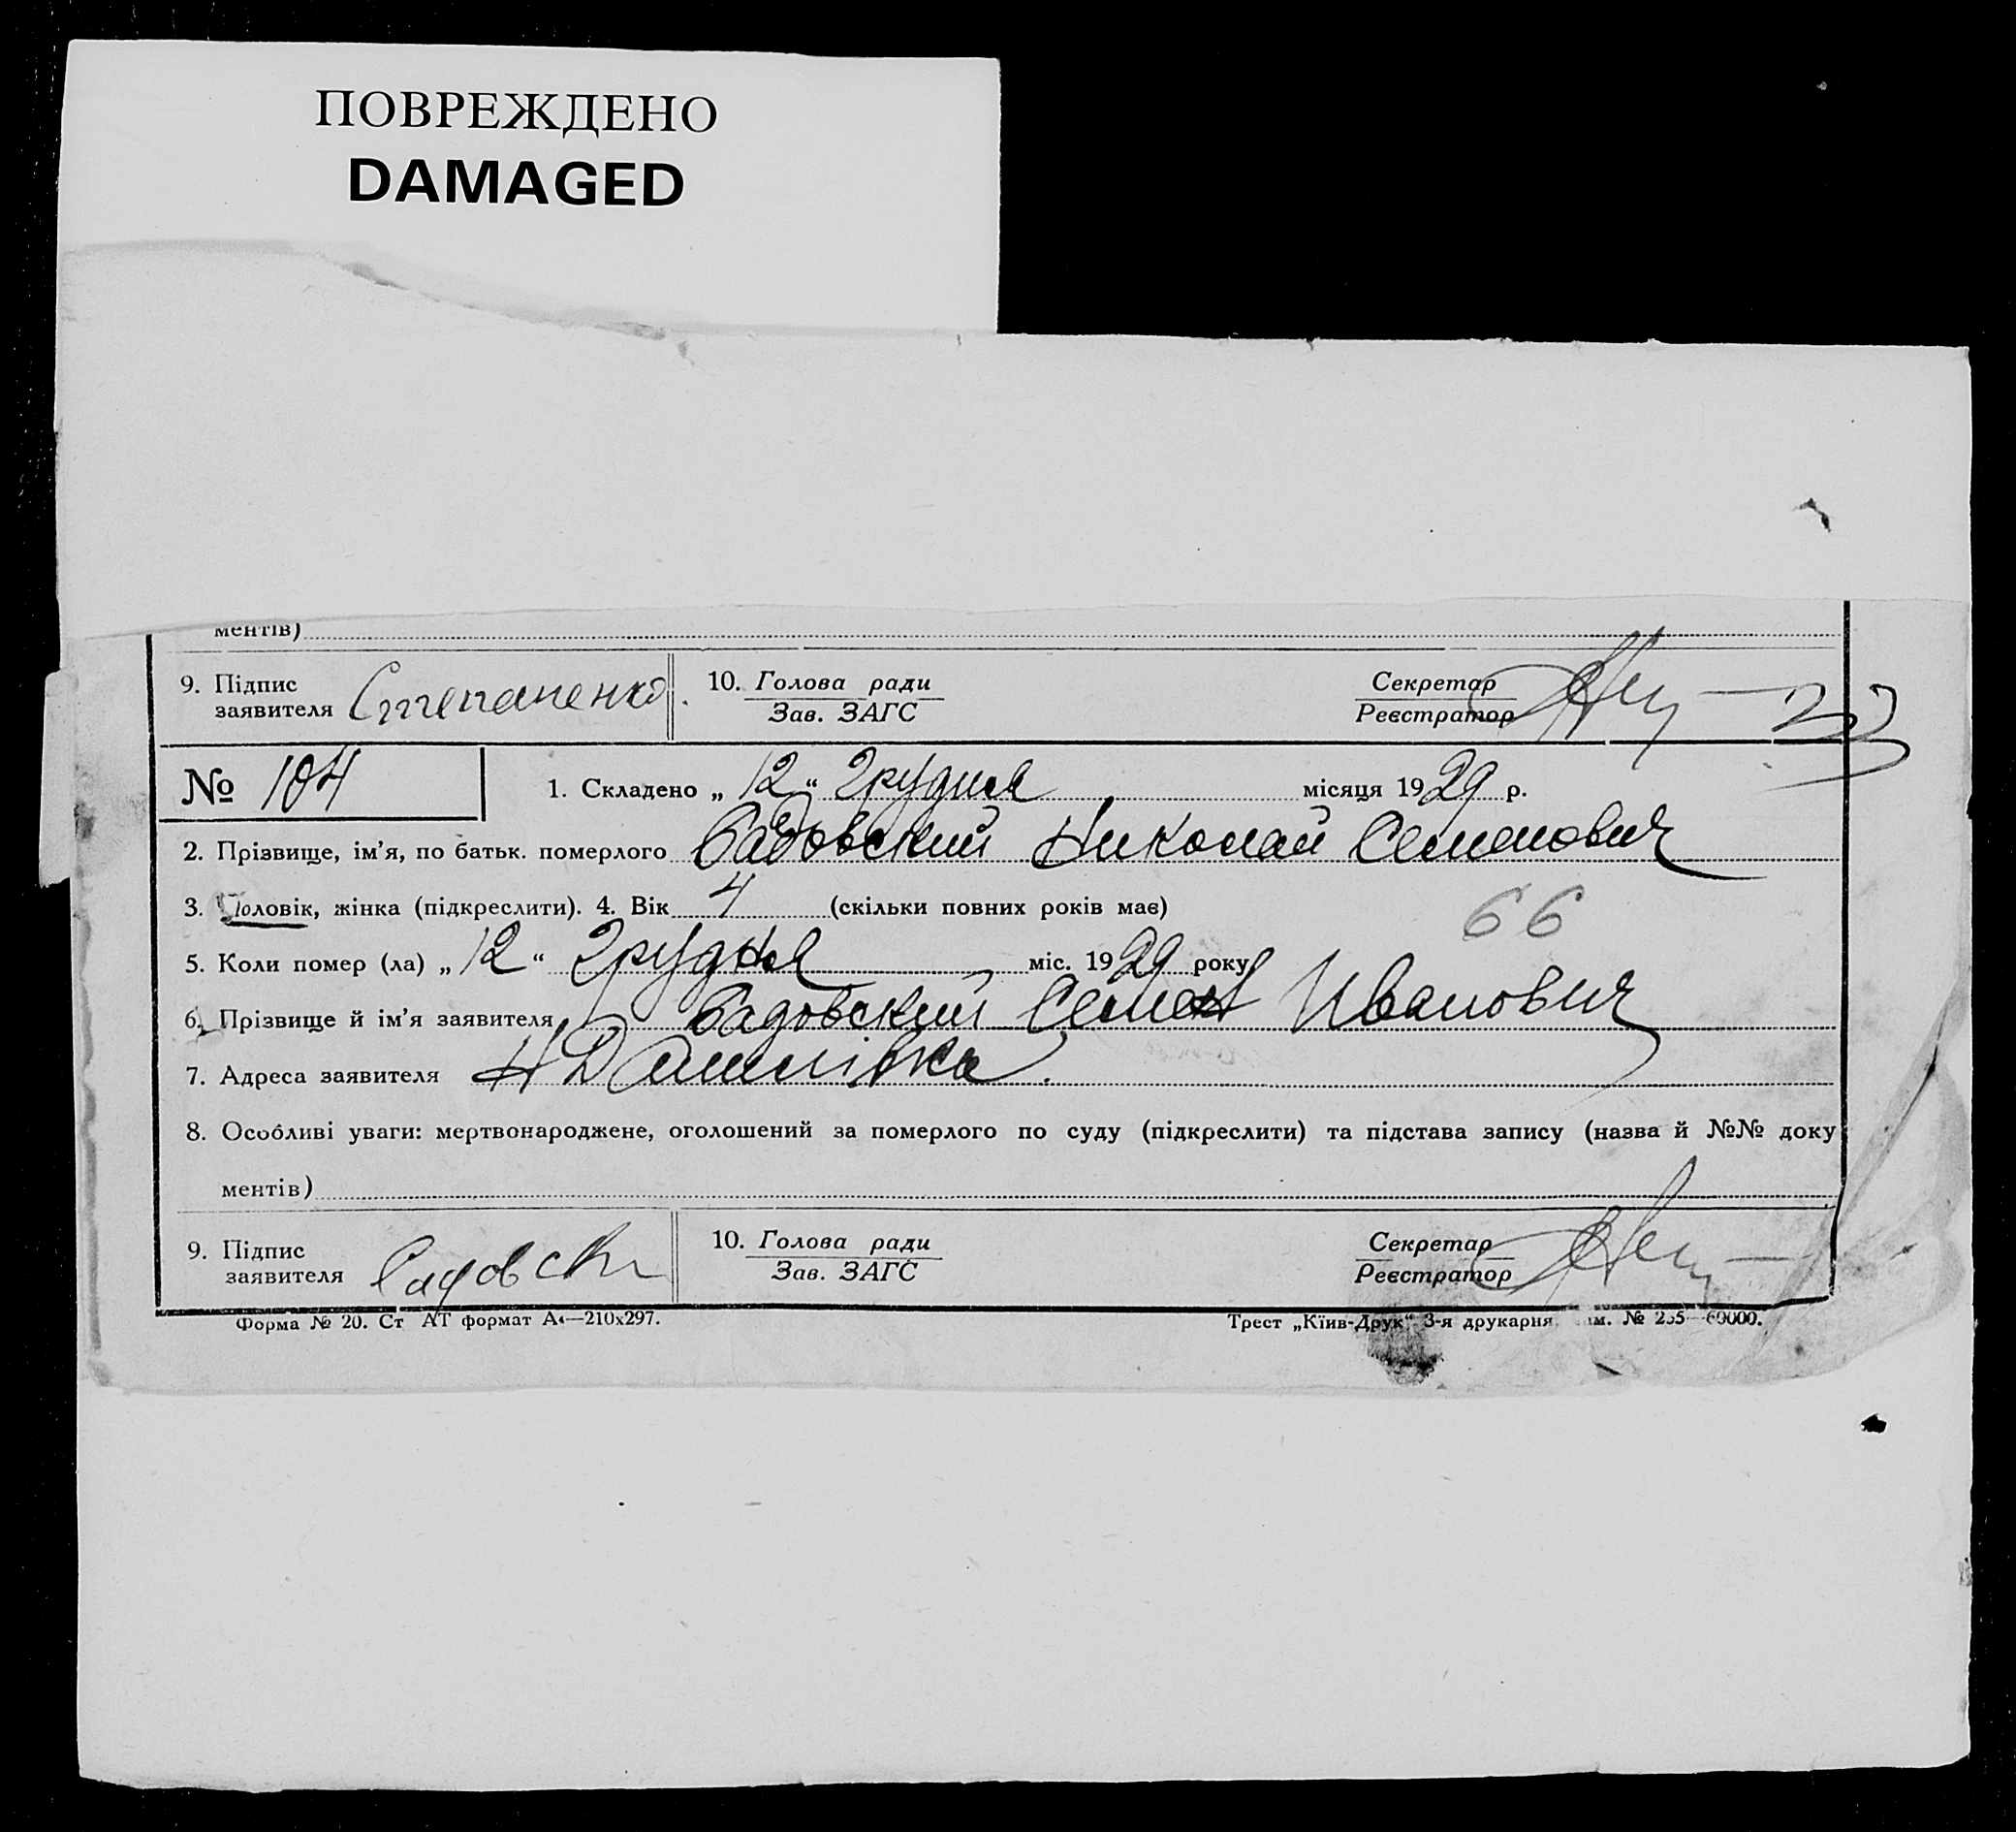 ПОВРЕЖДЕНО
DAMAGED
ментів)
9. Підпис заявителя Степаненко. 10. Голова ради Зав. ЗАГС Секретар Реєстратор
№ 104 1. Складено „12“ Грудня місяця 1929 р.
2. Прізвище, ім’я, по батьк. померлого Садовский Николай Семенович
3. Чоловік, жінка (підкреслити). 4. Вік 4 (скільки повних років має)
66
5. Коли помер (ла) „12“ Грудня міс. 1929 року
6. Прізвище й ім’я заявителя Садовский Семен Иванович
7. Адреса заявителя Н Дашлівка.
8. Особливі уваги: мертвонароджене, оголошений за померлого по суду (підкреслити) та підстава запису (назва й №№ доку
ментів)
9. Підпис заявителя Садовски 10. Голова ради Зав. ЗАГС Секретар Реєстратор
Форма № 20. Ст АТ формат А4—210х297. Трест „Київ-Друк“ 3-я друкарня № 235—60000.